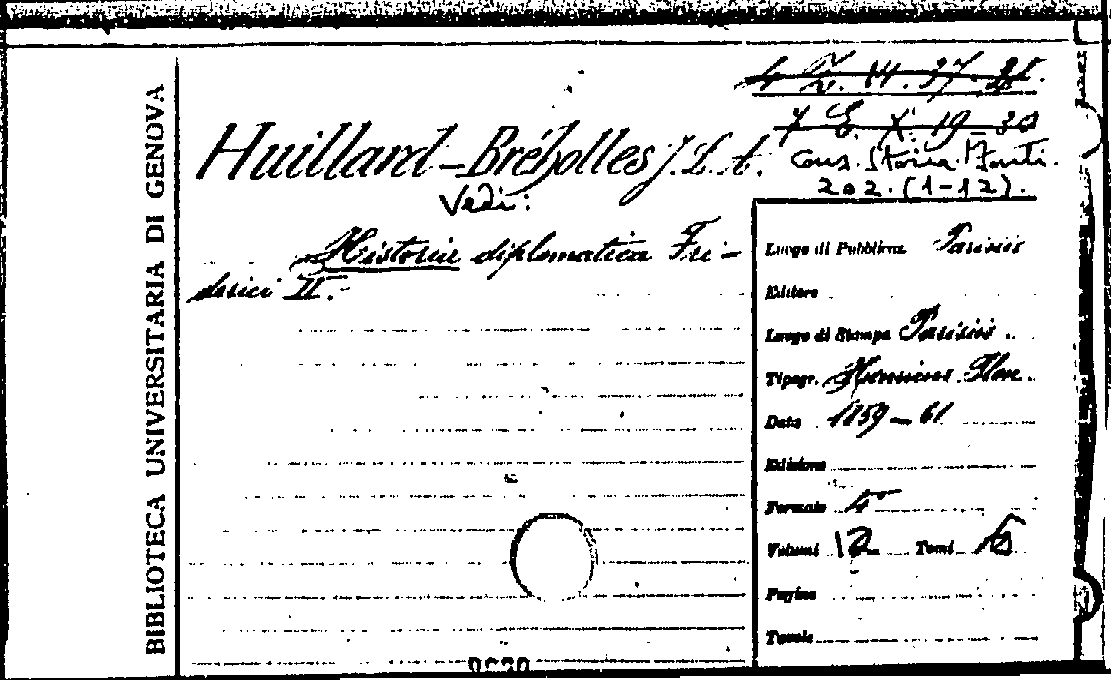 BIBLIOTECA UNIVERSITARIA DI GENOVA
4 Z. 14. 37-
7 E. X. 19-30
Cons. Storia. Fonti.
202. (1-12).
Huillard-Bréholles J. L. A.
Vedi:
Historia diplomatica Fri-
derici II.-
Luogo di Pubblicaz. Parisiis
Editore
Luogo di Stampa Parisiis.
Tipogr. Henricus Plon.
Data 1859-61
Edizione
Formato 4°
Volumi 12 Tomi 6
Pagine
Tavole